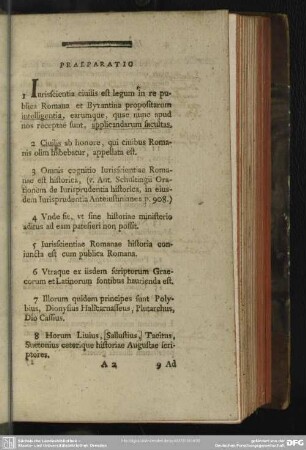 PRAEPARATIO
1 Iurisscientia ciuilis est legum in re pu-
blica Romana et Byzantina propositarum
intelligentia, earumque, quae nunc apud
nos receptae sunt, applicandarum facultas.
2 Ciuilis ab honore, qui ciuibus Roma-
nis olim habebatur, appellata est.
3 Omnis cognitio Iurisscientiae Roma-
nae est historica, (v. Ant. Schultingii Ora-
tionem de Iurisprudentia historica, in eius-
dem Iurisprudentia Anteiustinianea p. 908.)
4 Vnde fit, vt sine historiae ministerio
aditus ad eam patefieri non possit.
5 Iurisscientiae Romanae historia con-
iuncta est cum publica Romana.
6 Vtraque ex iisdem scriptorum Grae-
corum et Latinorum fontibus haurienda est.
7 Illorum quidem principes sunt Poly-
bius, Dionysius Halicarnasseus, Plutarchus,
Dio Cassius.
8 Horum Liuius, Sallustius, Tacitus,
Suetonius ceterique historiae Augustae scri-
ptores.
A 2 9 Ad